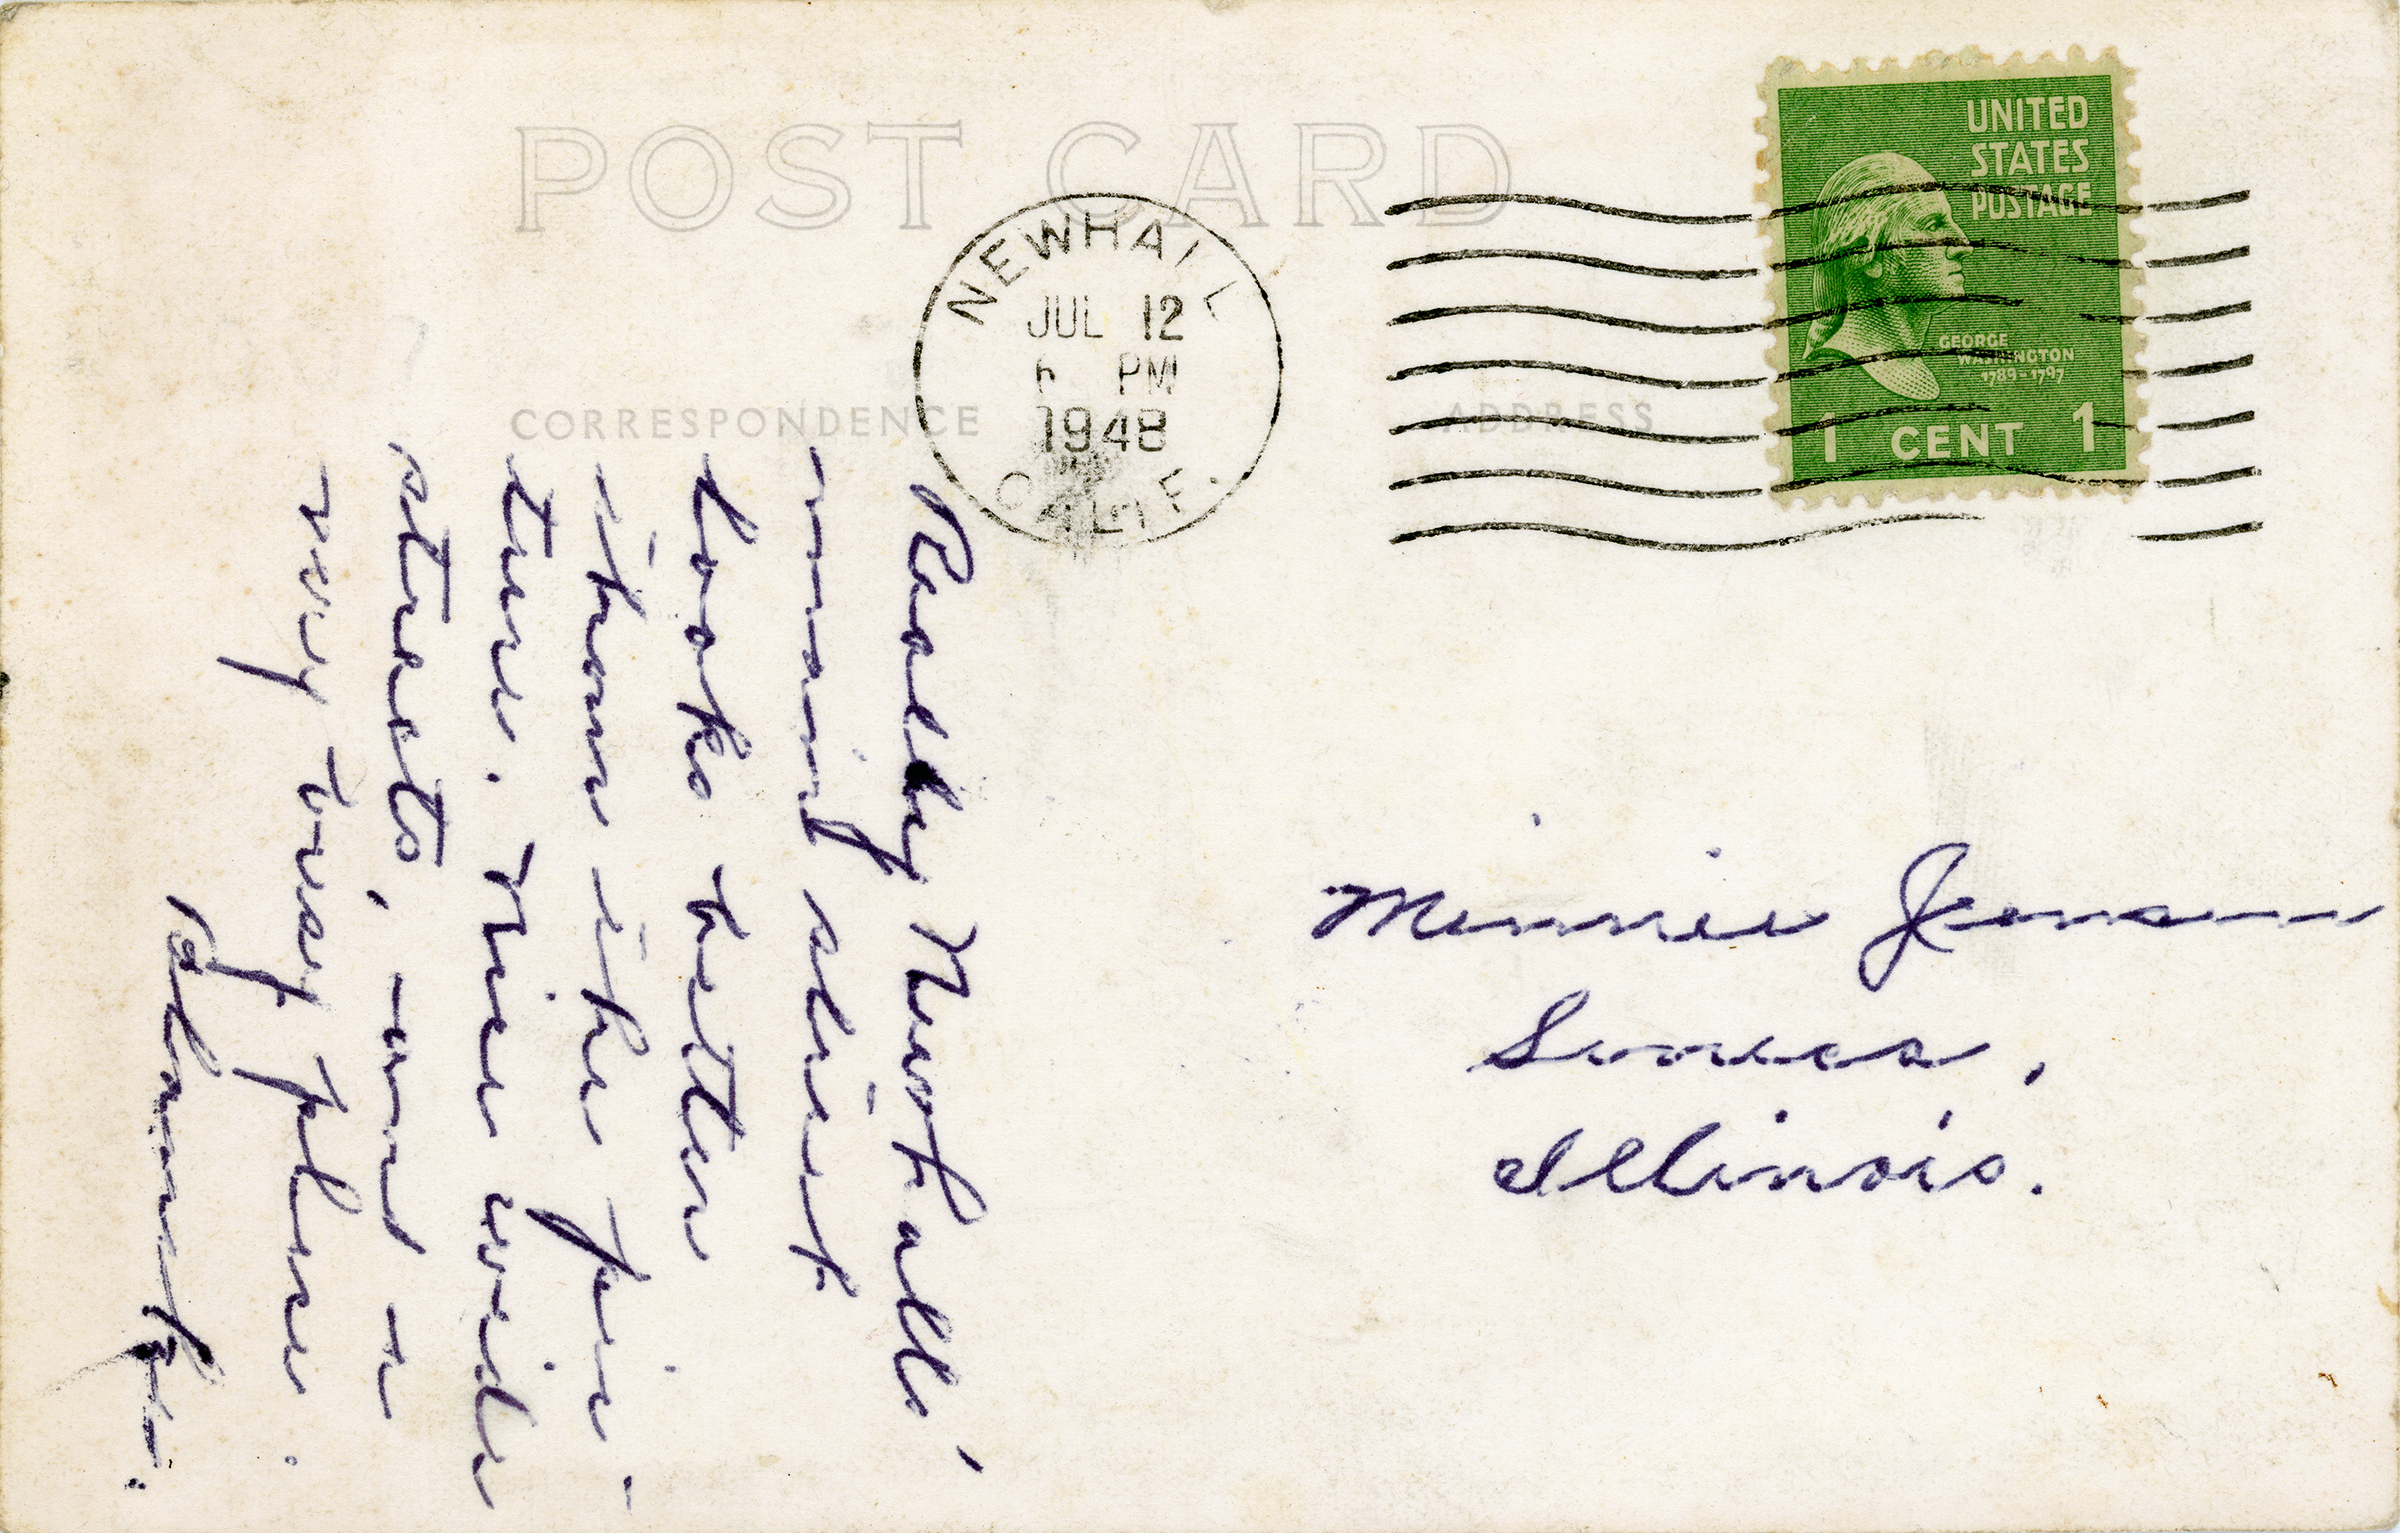 POST CARD
NEWHALL
JUL 12
6 PM
1948
CALIF.
UNITED
STATES
POSTAGE
GEORGE
WASHINGTON
1789-1797
1 CENT 1
CORRESPONDENCE
ADDRESS
Really Newhalls'
main street
looks better
than the pic-
ture. Nice wide
streets, and a
very busy place.
Minnie Jensen
Seneca,
Illinois.